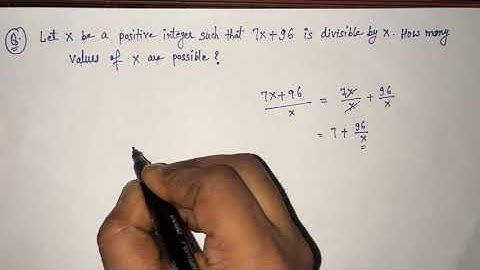 Q. Let x be a positive integer such that 7x+96 is divisible by x. How many
values of x are possible?
7x+96/x = 7x/x + 96/x
= 7 + 96/x